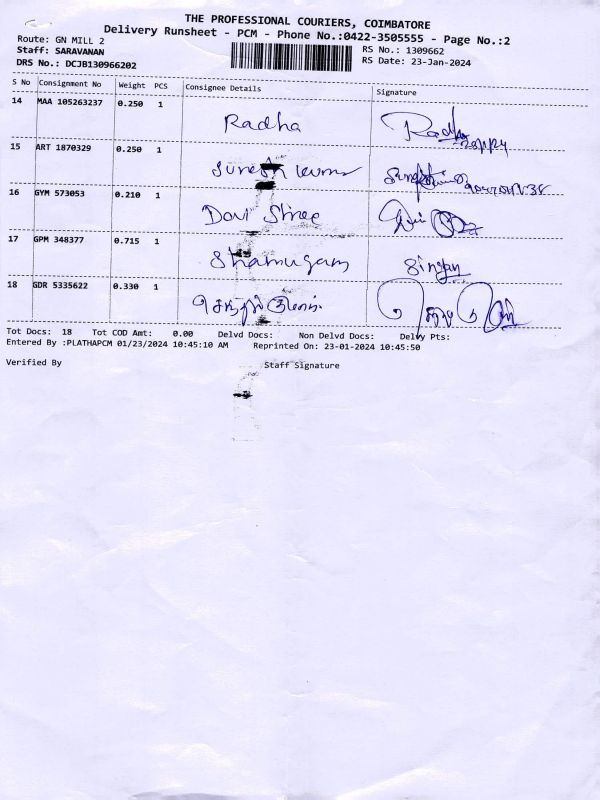 THE PROFESSIONAL COURIERS, COIMBATORE
Delivery Runsheet - PCM - Phone No.:0422-3505555 - Page No.:2
Route: GN MILL 2
RS No.: 1309662
Staff: SARAVANAN
RS Date: 23-Jan-2024
DRS No.: DCJB130966202
S No Consignment No Weight PCS Consignee Details Signature
14 MAA 105263237 0.250 1 Radha Radha
15 ART 1870329 0.250 1 Suresh kumar
16 GYM 573053 0.210 1 Devi Shree
17 GPM 348377 0.715 1 Shamugam
18 GDR 5335622 0.330 1 செந்தில்
Tot Docs: 18 Tot COD Amt: 0.00 Delvd Docs: Non Delvd Docs: Delvy Pts:
Entered By :PLATHAPCM 01/23/2024 10:45:10 AM Reprinted On: 23-01-2024 10:45:50
Verified By Staff Signature